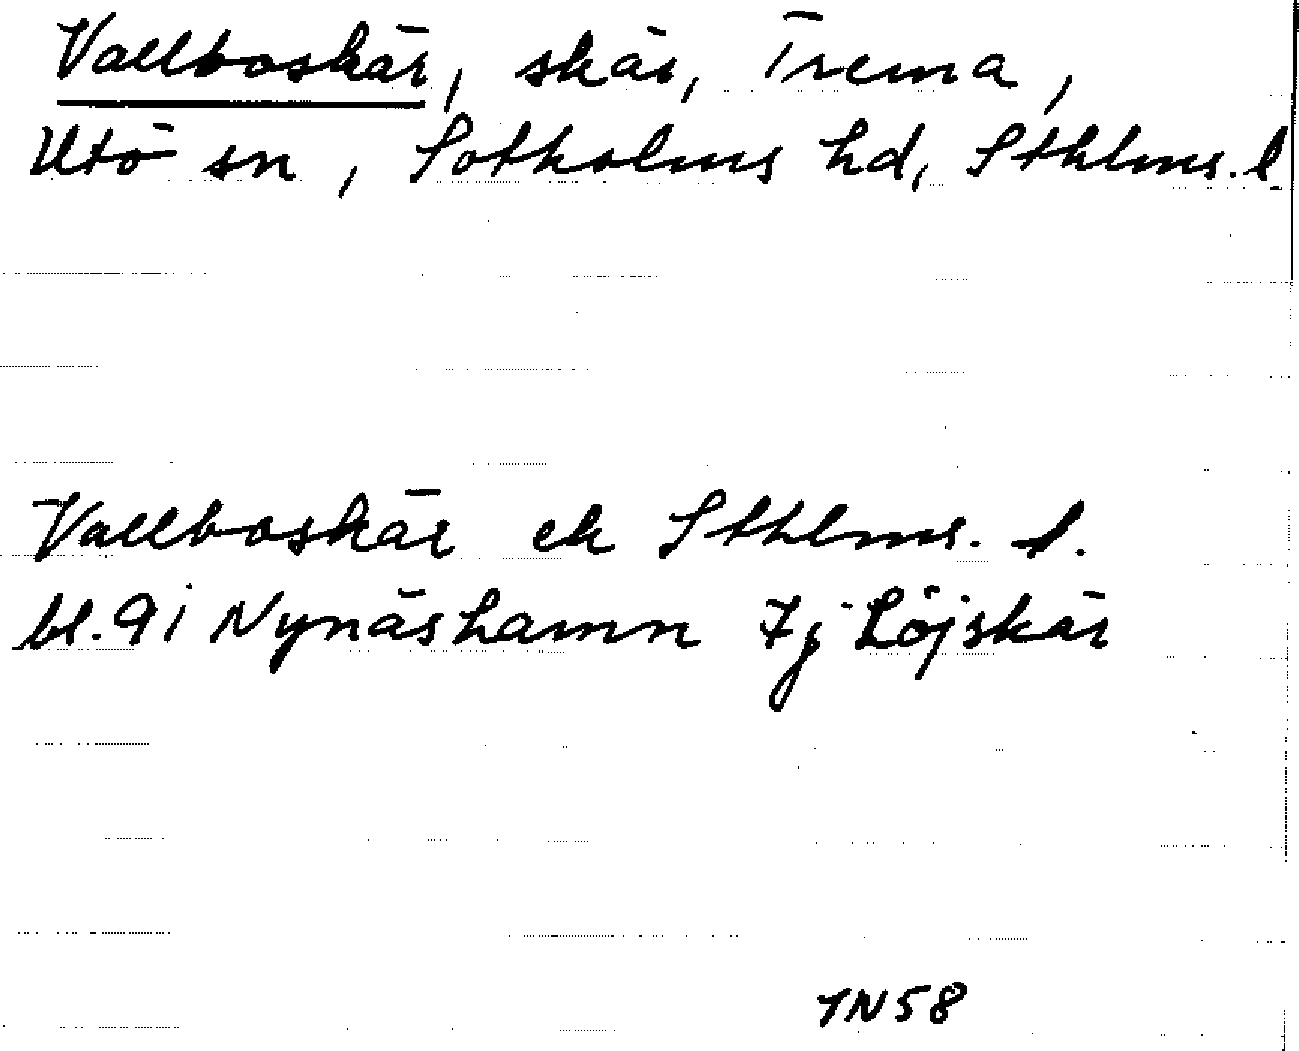 Vallboskär, skär, Trema,
Utö sn, Sotholms hd, Sthlms. l
Vallboskär ek Sthlms. l.
bl. 9i Nynäshamn 7j Löjskär
IN58